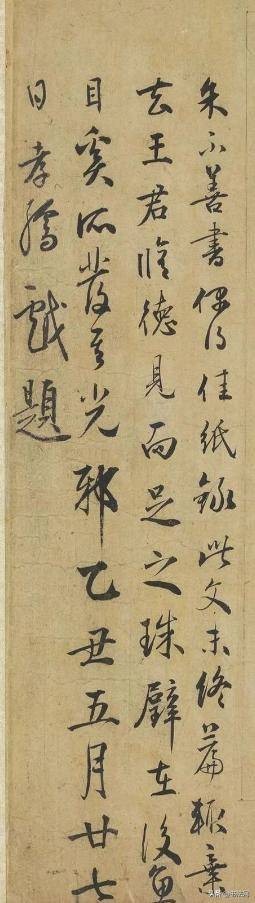 不善書偶得佳紙錄此文未終篇輒棄
去王君德見而足之珠璧在後魚
目奚所發其光邪乙丑五月廿七
日孝戲題